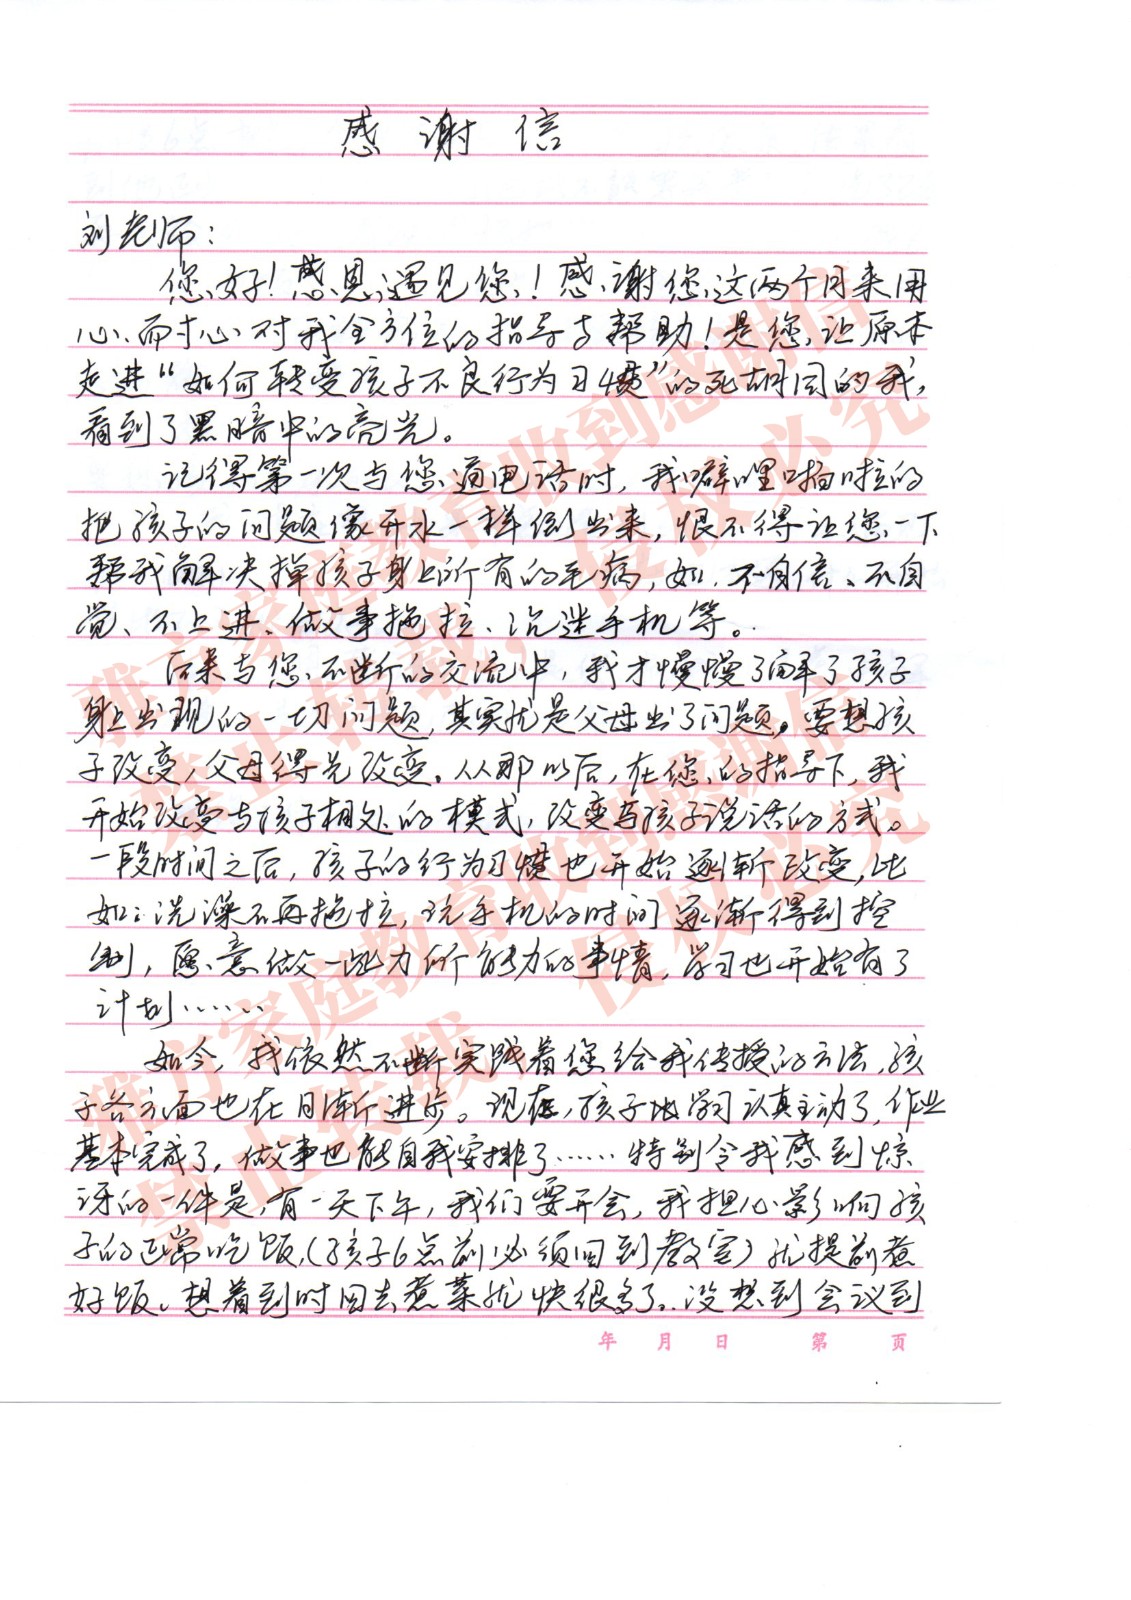 感谢信
刘老师：
您好！感恩遇见您！感谢您这两个月来用
心、耐心对我全方位的指导与帮助！是您让原本
走进“如何转变孩子不良行为习惯”的死胡同的我，
看到了黑暗中的亮光。
记得第一次与您通电话时，我噼哩啪啦的
把孩子的问题像开水一样倒出来，恨不得让您一下
帮我解决掉孩子身上所有的毛病，如：不自信、不自
觉、不上进、做事拖拉、沉迷手机等。
后来与您不断的交流中，我才慢慢了解了孩子
身上出现的一切问题，其实就是父母出了问题。要想孩
子改变，父母得先改变。从那以后，在您的指导下，我
开始改变与孩子相处的模式，改变与孩子说话的方式。
一段时间之后，孩子的行为习惯也开始逐渐改变，比
如：洗澡不再拖拉，玩手机的时间逐渐得到控
制，愿意做一些力所能力的事情，学习也开始有了
计划……
如今，我依然不断实践着您给我传授的方法，孩
子各方面也在日渐进步。现在，孩子地学习认真主动了，作业
基本完成了，做事也能自我安排了……特别令我感到惊
讶的一件是，有一天下午，我们要开会，我担心影响孩
子的正常吃饭，（孩子6点前必须回到教室）就提前煮
好饭、想着到时回去煮菜就快很多了。没想到会议到
年 月 日 第 页
雅方家庭教育收到感谢信
禁止转载，侵权必究
雅方家庭教育收到感谢信
禁止转载，侵权必究